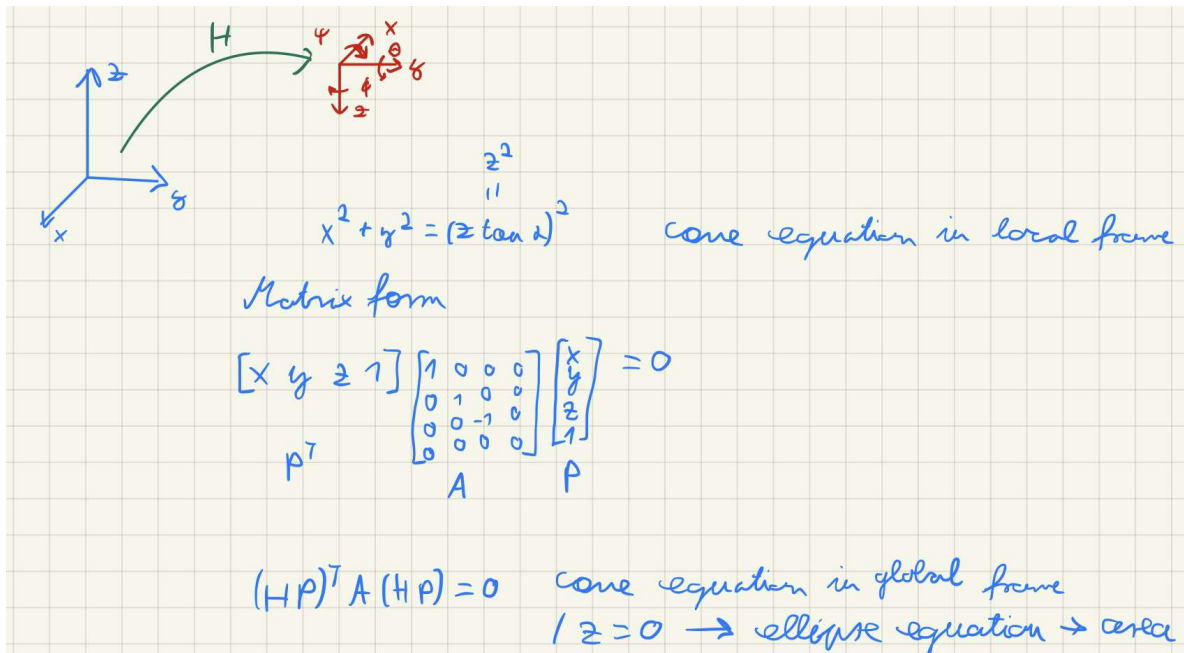 H
z
y
x
ψ
x
θ
y
φ
z
z²
=
x² + y² = (z tan α)² cone equation in local frame
Matrix form
[x y z 1] [1 0 0 0 [x = 0
0 1 0 0 y
0 0 -1 0 z
0 0 0 0] 1]
Pᵀ A P
(HP)ᵀ A (HP) = 0 cone equation in global frame
/ z = 0 → ellipse equation → area